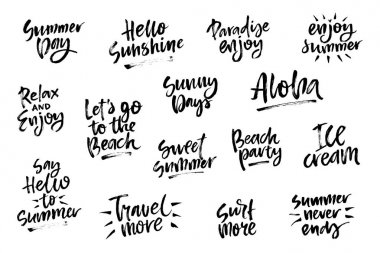 Summer
Day
Hello
Sunshine
Paradise
enjoy
enjoy
summer
Relax
AND
Enjoy
Let's go
to the
Beach
Sunny
Days
Aloha
Say
Hello
to
Summer
Sweet
Summer
Beach
party
Ice
cream
Travel
more
Surf
more
Summer
never
ends